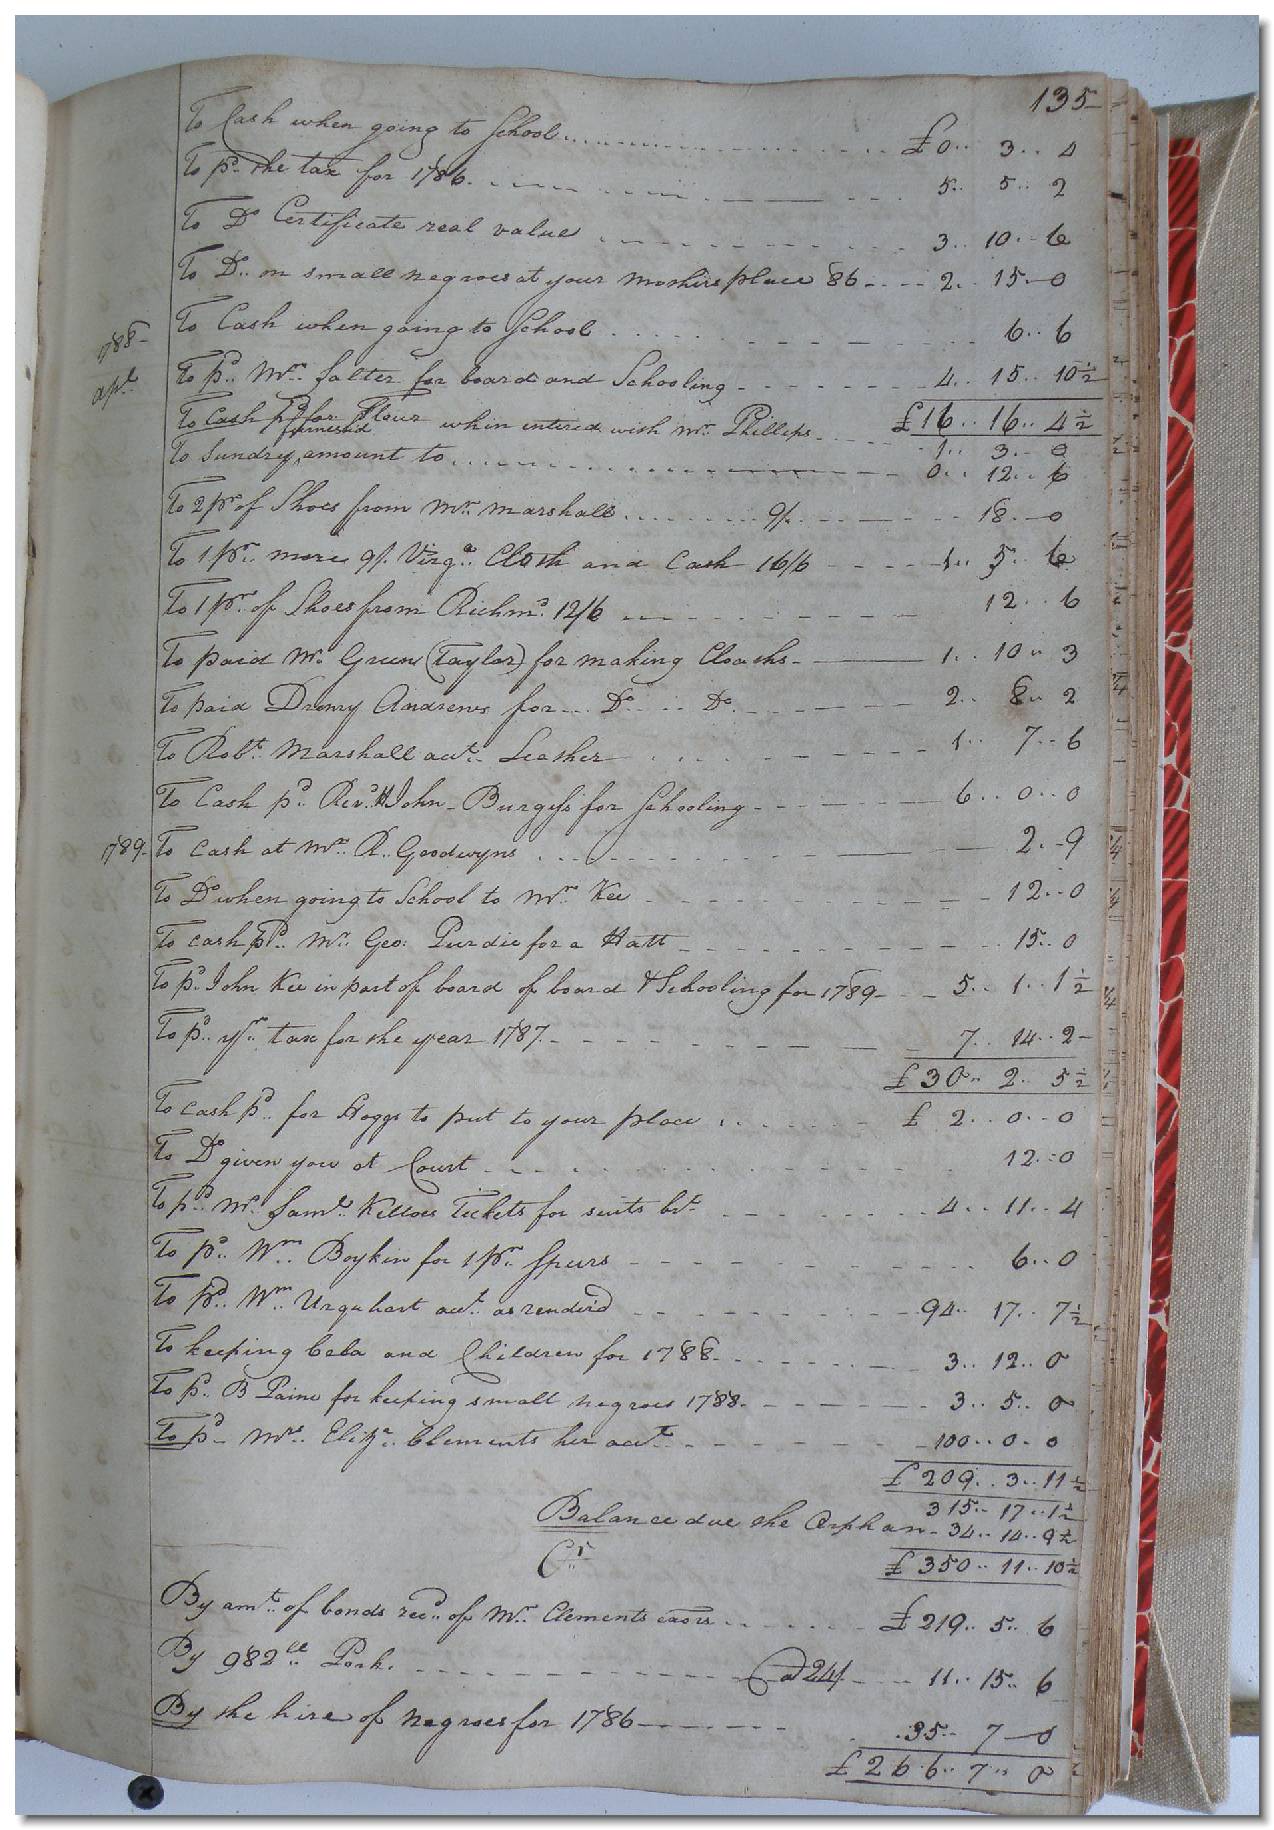 135
To Cash when going to School £0.. 3.. 4
To pd. the tax for 1786. 5.. 5.. 2
To Do Certificate real value 3.. 10.. 6
To Do.. on small negroes at your mothers place 86 2.. 15.. 0
To Cash when going to School 6.. 6
1788
apl. To pd.. Mr.. Salter for board and Schooling 4.. 15.. 10 1/2
£16.. 16.. 4 1/2
To Cash pd for Flour when entered with Mr. Phillips 1.. 3.. 0
To Sundrys furnished amount to 0.. 12.. 6
To 2 pr of Shoes from Mr.. Marshall 9/. 18.. 0
To 1 pr.. more 9/. Virga.. Cloth and Cash 16/6 1.. 5.. 6
To 1 pr.. of Shoes from Richmd. 12/6 12.. 6
To paid Mr. Green (Taylor) for making Cloaths 1.. 10.. 3
To paid Drewry Andrews for Do Do 2.. 8.. 2
To Robt. Marshall acct. Leather 1.. 7.. 6
To Cash pd. Revd. John Burgess for Schooling 6.. 0.. 0
1789. To Cash at Mr.. R.. Goodwyns 2.. 9
To Do when going to School to Mr Kee 12.. 0
To cash pd.. Mr.. Geo: Purdie for a Hatt 15.. 0
To pd. John Kee in part of board of board & Schooling for 1789 5.. 1.. 1 1/2
To pd.. yr.. tax for the year 1787. 7.. 14.. 2
£30.. 2.. 5 1/2
To Cash pd.. for Hoggs to put to your place £ 2.. 0.. 0
To Do given you at Court 12.. 0
To pd.. Mr. Saml.. Kelloes Tickets for suits bt. 4.. 11.. 4
To pd.. Wm.. Boykin for 1 pr. Spurs 6.. 0
To pd.. Wm.. Urquhart acct. as renderd 94.. 17.. 7 1/2
To keeping Celia and Children for 1788 3.. 12.. 0
To pd.. B Paine for keeping small negroes 1788. 3.. 5.. 0
To pd. Mrs.. Eliza.. Clements her acct. 100.. 0.. 0
£209.. 3.. 11 1/2
315.. 17.. 1 1/2
Balance due the Orphan 34.. 14.. 9 1/2
£350.. 11.. 10 1/2
Cr
By amt. of bonds recd.. of Mr. Clements exors £219.. 5.. 6
By 982 ll Pork. @ 24/ 11.. 15.. 6
By the hire of negroes for 1786 35.. 7.. 0
£266.. 7.. 0